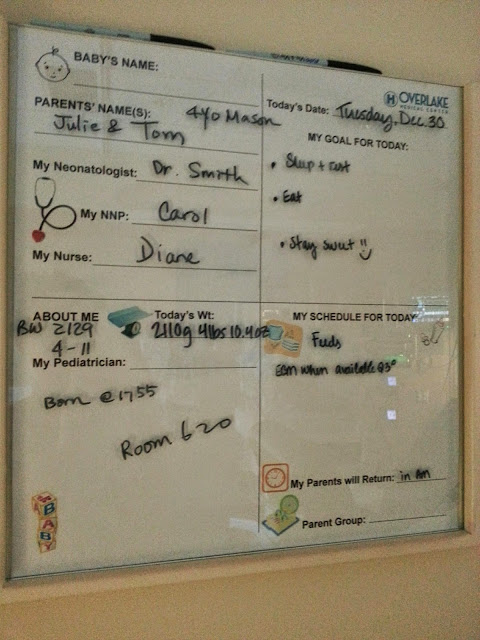 BABY'S NAME:
PARENTS' NAME(S): 4yo Mason
Julie & Tom
My Neonatologist: Dr. Smith
My NNP: Carol
My Nurse: Diane
ABOUT ME
BW 2129
4-11
Today's Wt:
2110g 4lbs 10.4oz
My Pediatrician:
Born @ 1755
Room 620
BABY
OVERLAKE
MEDICAL CENTER
Today's Date: Tuesday, Dec. 30
MY GOAL FOR TODAY:
• Sleep + rest
• Eat
• Stay sweet !!
MY SCHEDULE FOR TODAY
Feeds
EBM when available Q3°
My Parents will Return: in AM
Parent Group: